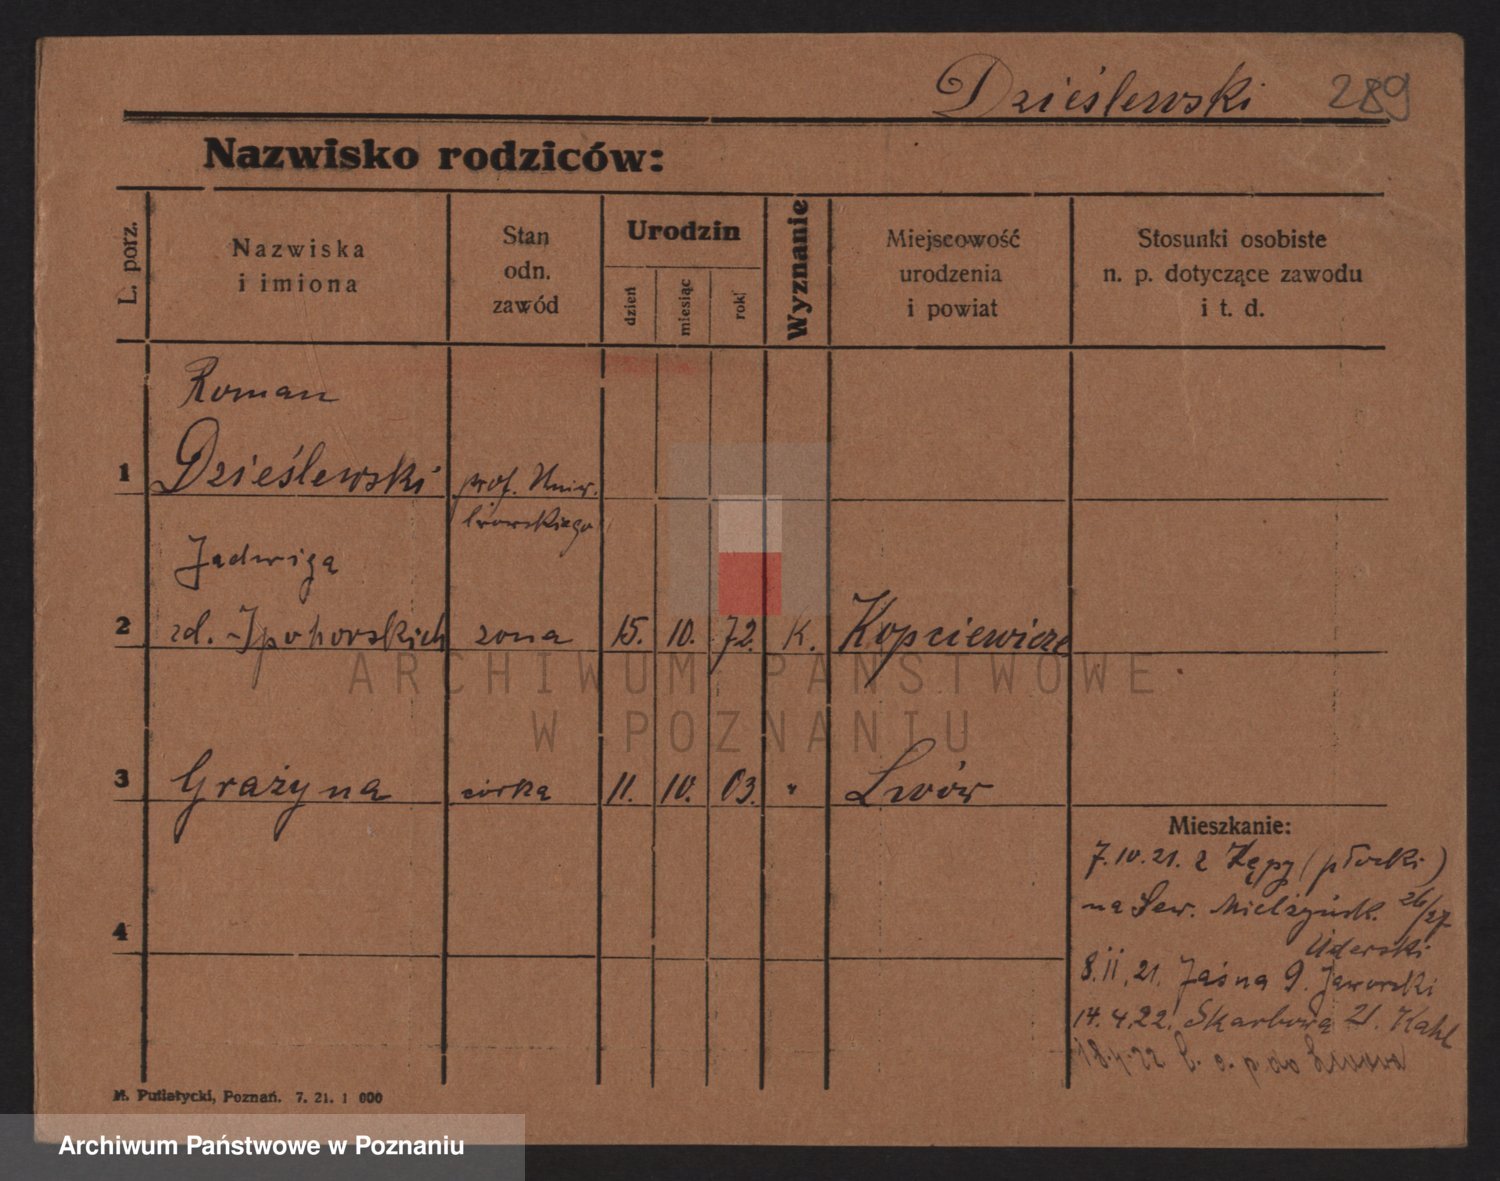 Dzieślewski 289
Nazwisko rodziców:
L. porz.
Nazwiska
i imiona
Stan
odn.
zawód
Urodzin
dzień
miesiąc
rok
Wyznanie
Miejscowość
urodzenia
i powiat
Stosunki osobiste
n. p. dotyczące zawodu
i t. d.
Roman
1 Dzieślewski prof. Uniw.
lwowskiego
Jadwiga
2 zd. Ipohorskich żona 15. 10. 72. K. Kopciewicze
ARCHIWUM PAŃSTWOWE
W POZNANIU
3 Grażyna córka 11. 10. 03. " Lwów
Mieszkanie:
7.10.21. z Kępy (płocki)
na Sew. Mielżyńsk. 26/27
4
8.11.21. Jasna 9. Jaworski
14.4.22. Skarbowa 21. Kahl
22 do Lwowa
M. Putiatycki, Poznań. 7. 21. 1 000
Archiwum Państwowe w Poznaniu